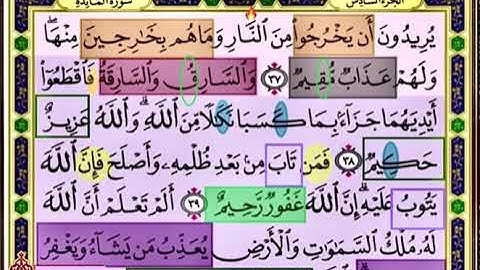 الجزء السادس
سورة المائدة
يُرِيدُونَ أَن يَخْرُجُوا۟ مِنَ ٱلنَّارِ وَمَا هُم بِخَٰرِجِينَ مِنْهَا ۖ
وَلَهُمْ عَذَابٌ مُّقِيمٌ ﴿٣٧﴾ وَٱلسَّارِقُ وَٱلسَّارِقَةُ فَٱقْطَعُوٓا۟
أَيْدِيَهُمَا جَزَآءًۢ بِمَا كَسَبَا نَكَٰلًا مِّنَ ٱللَّهِ ۗ وَٱللَّهُ عَزِيزٌ
حَكِيمٌ ﴿٣٨﴾ فَمَن تَابَ مِنۢ بَعْدِ ظُلْمِهِۦ وَأَصْلَحَ فَإِنَّ ٱللَّهَ
يَتُوبُ عَلَيْهِ ۗ إِنَّ ٱللَّهَ غَفُورٌ رَّحِيمٌ ﴿٣٩﴾ أَلَمْ تَعْلَمْ أَنَّ ٱللَّهَ
لَهُۥ مُلْكُ ٱلسَّمَٰوَٰتِ وَٱلْأَرْضِ يُعَذِّبُ مَن يَشَآءُ وَيَغْفِرُ